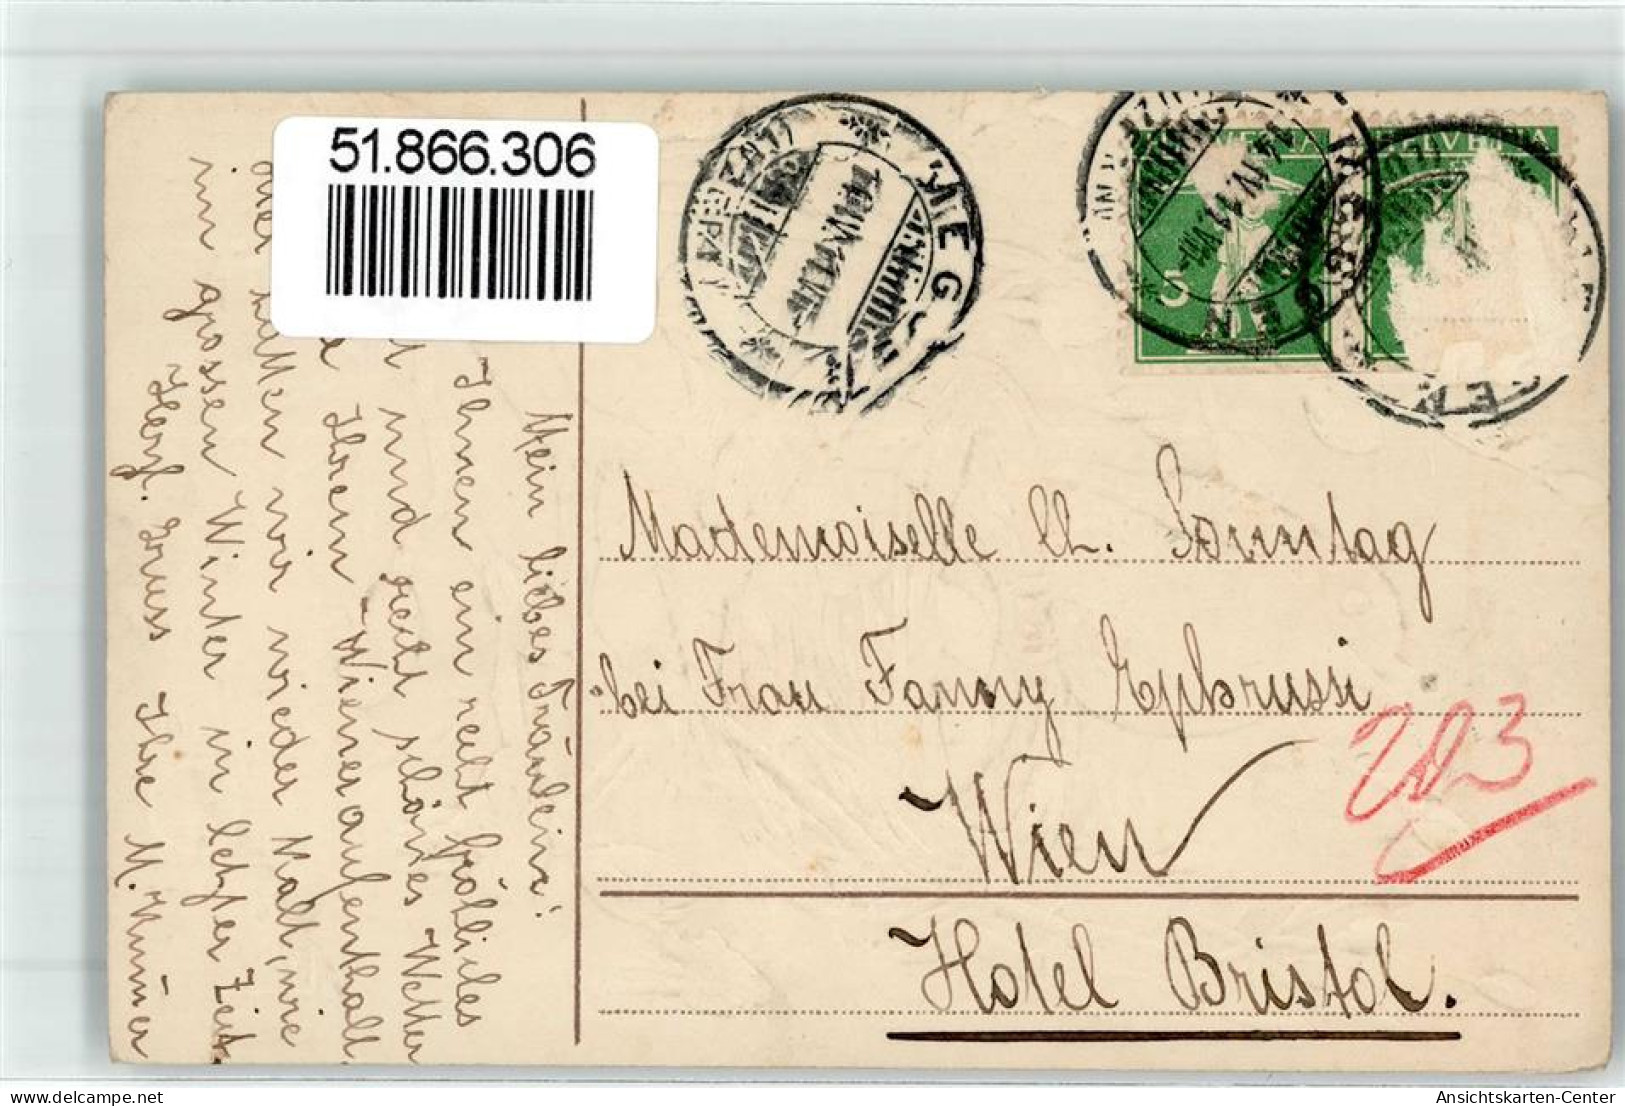 51.866.306
MEGGEN
(LUZERN)
14.IV.11.VII
HELVETIA
HELVETIA
5
Mein liebes Fräulein!
Ihnen ein recht fröhliches
und recht schönes Wetter
Ihrem Wieneraufenthalt
hatten wir wieder Kalt, wie
im grossen Winter in letzter Zeit.
Herz. Gruss Ihre M.
Mademoiselle Cl. Sonntag
bei Frau Fanny Ephrussi
Wien
Hotel Bristol.
203
Ansichtskarten-Center